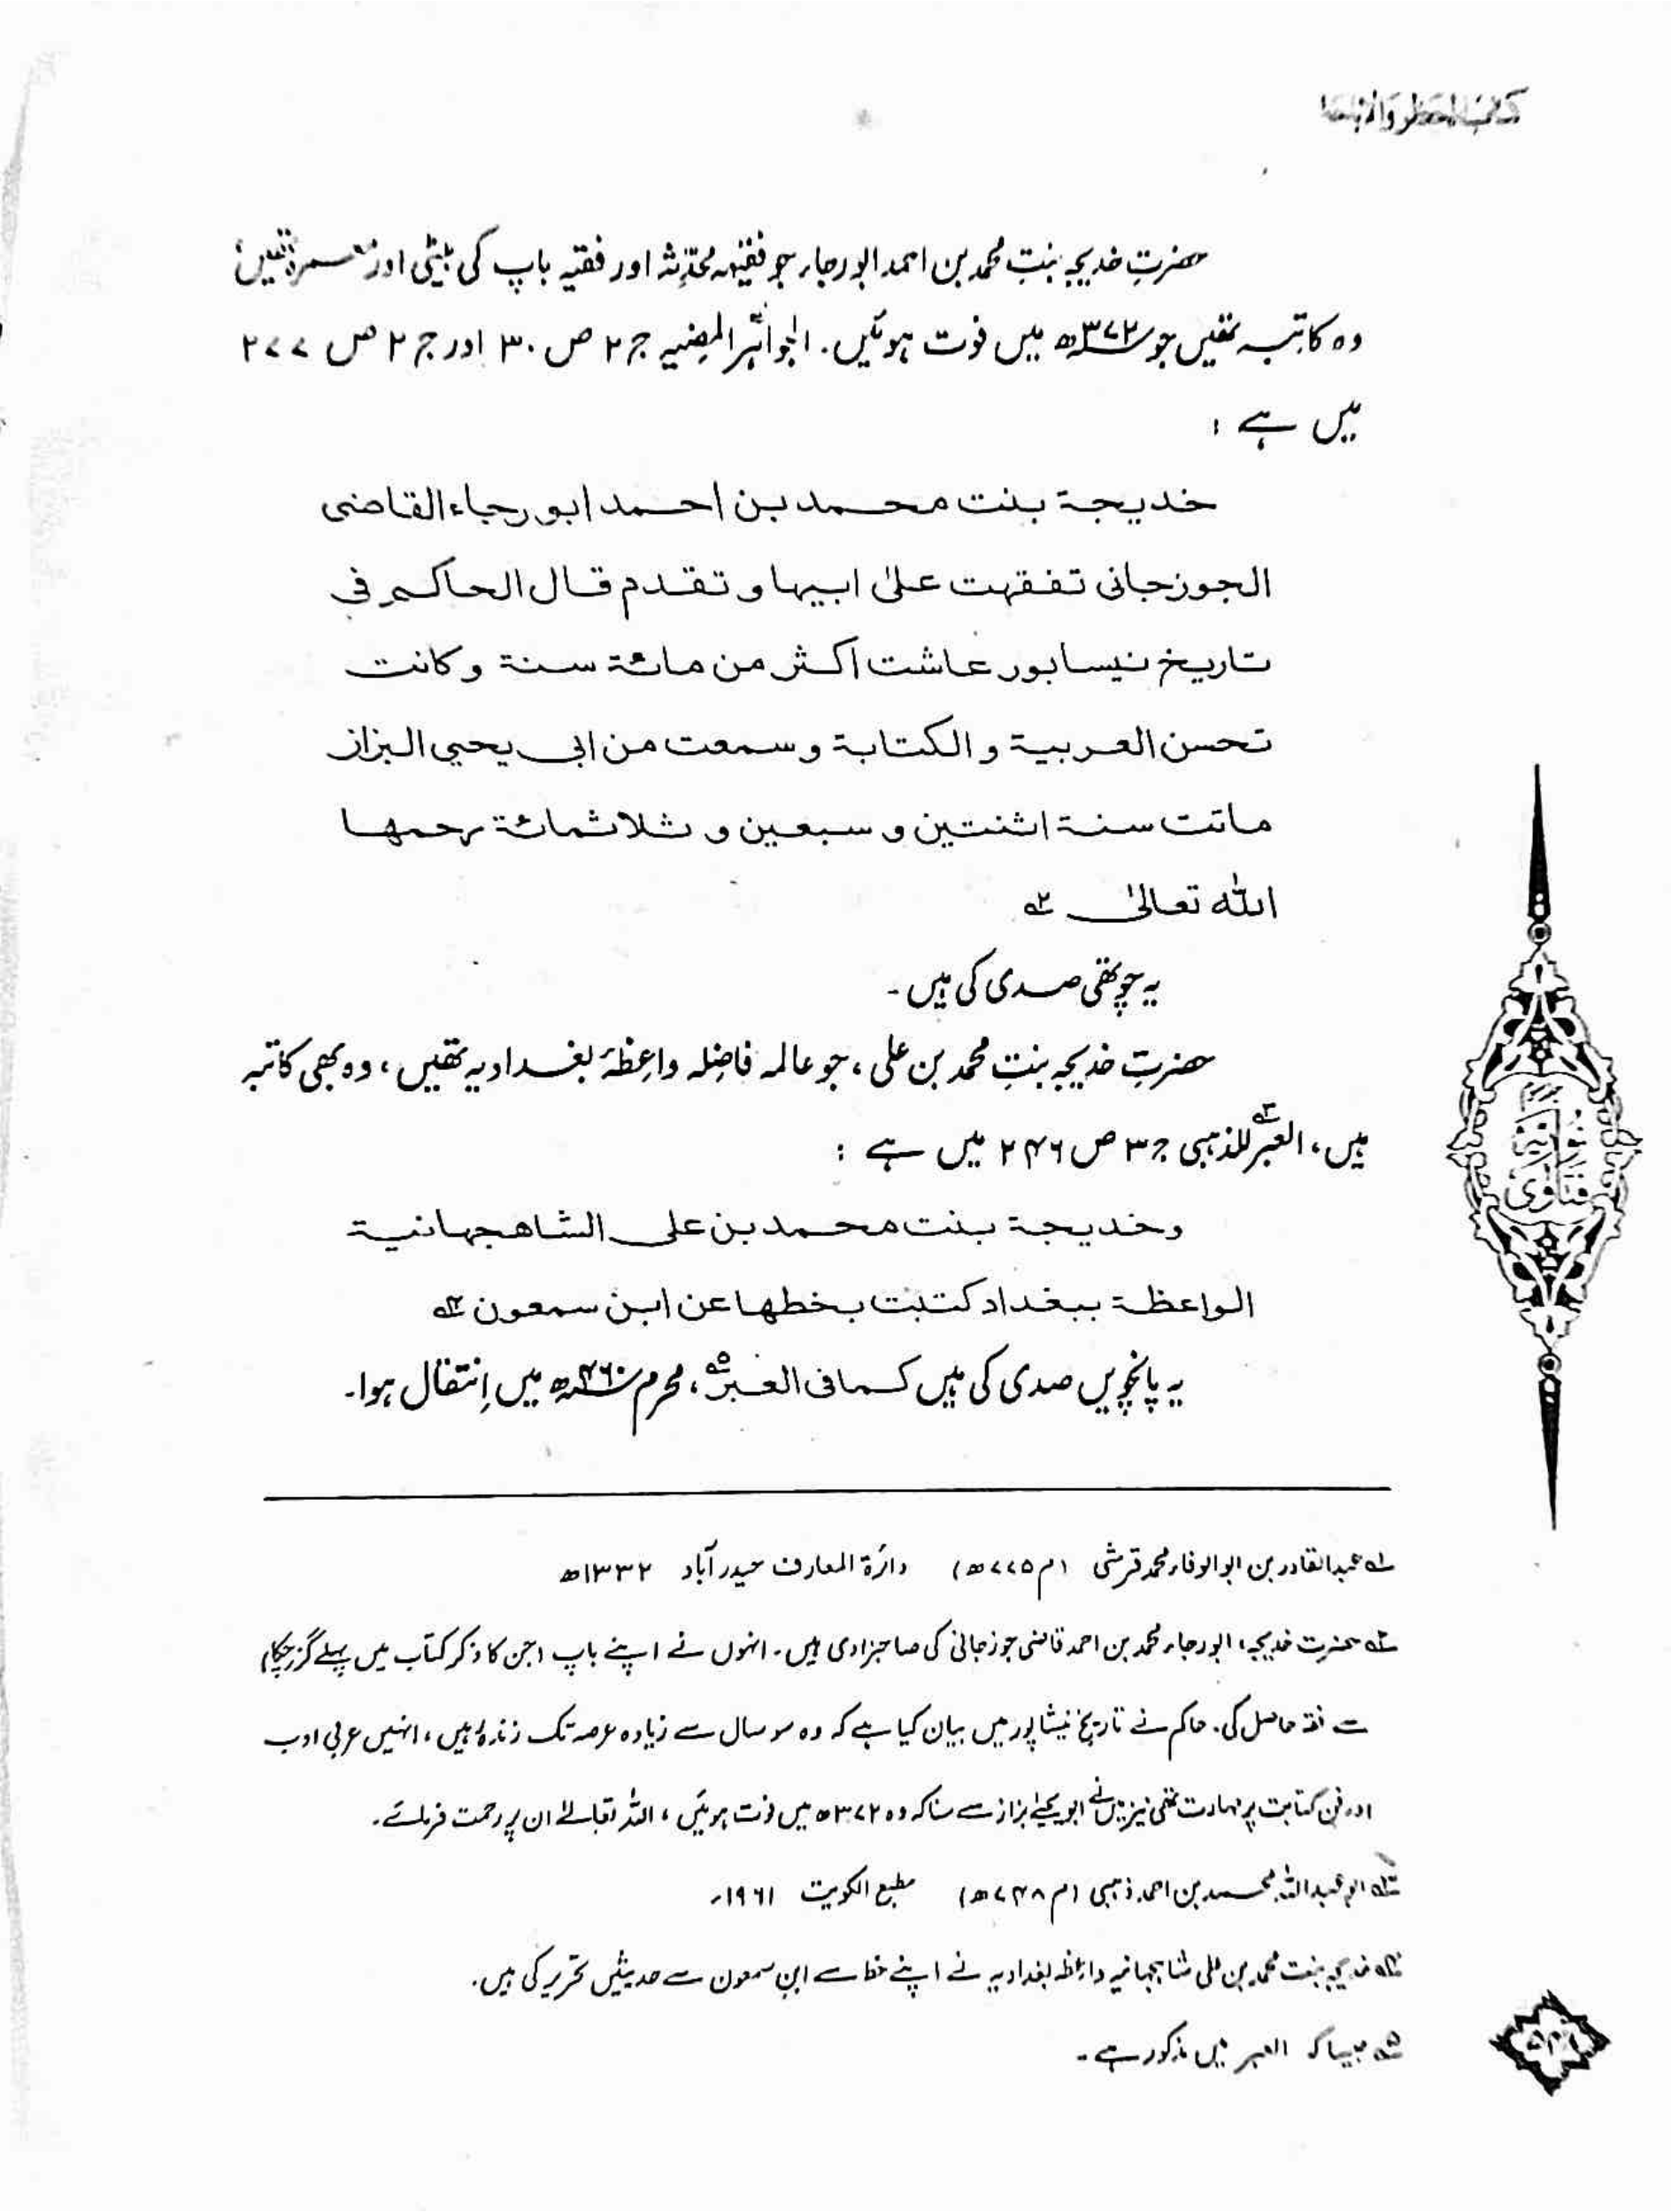 کتاب الحظر والاباحة
حضرتِ خدیجہ بنتِ محمد بن احمد ابو رجاء جو فقیہہ محدّثہ اور فقیہ باپ کی بیٹی اور معمرہ تھیں،
وہ کاتبہ تھیں جو ۳۷۲ھ میں فوت ہوئیں۔ الجواہر المضیہ ج ۲ ص ۳۰ اور ج ۲ ص ۲۷۷
میں ہے :
خدیجة بنت محمد بن احمد ابو رجاء القاضی
الجوزجانی تفقهت علیٰ ابیها و تقدم قال الحاکم فی
تاریخ نیسابور عاشت اکثر من مائة سنة و کانت
تحسن العربیة و الکتابة و سمعت من ابی یحیی البزاز
ماتت سنة اثنتین و سبعین و ثلاثمائة رحمها
الله تعالیٰ ۲ه
یہ چوتھی صدی کی ہیں۔
حضرتِ خدیجہ بنتِ محمد بن علی ، جو عالمہ فاضِلہ واعِظۂ بغدادیہ تھیں ، وہ بھی کاتبہ
ہیں ، العبر۳ه للذہبی ج ۳ ص ۲۴۶ میں ہے :
وخدیجة بنت محمد بن علی الشاهجهانیة
الواعظة ببغداد کتبت بخطها عن ابن سمعون ۴ه
یہ پانچویں صدی کی ہیں کما فی العبر۵ه ، محرم ۴۶۰ھ میں اِنتقال ہوا۔
فتاویٰ نوریہ
۱ه عبدالقادر بن ابو الوفاء محمد قرشی (م ۷۷۵ھ) دائرة المعارف حیدر آباد ۱۳۳۲ھ
۲ه حضرت خدیجہ، ابو رجاء محمد بن احمد قاضی جوزجانی کی صاحبزادی ہیں۔ انہوں نے اپنے باپ (جن کا ذکر کتاب میں پہلے گزر چکا)
سے فقہ حاصل کی۔ حاکم نے تاریخ نیشاپور میں بیان کیا ہے کہ وہ سو سال سے زیادہ عرصہ تک زندہ رہیں ، انہیں عربی ادب
اور فن کتابت پر مہارت تھی نیز میں نے ابو یحییٰ بزاز سے سنا کہ وہ ۳۷۲ھ میں فوت ہوئیں ، اللہ تعالےٰ ان پر رحمت فرمائے۔
۳ه ابو عبداللہ محمد بن احمد ذہبی (م ۷۴۸ھ) مطبع الکویت ۱۹۶۱ء
۴ه خدیجہ بنت محمد بن علی شاہجہانیہ واعظہ بغدادیہ نے اپنے خط سے ابنِ سمعون سے حدیثیں تحریر کی ہیں۔
۵ه جیسا کہ العبر میں مذکور ہے۔